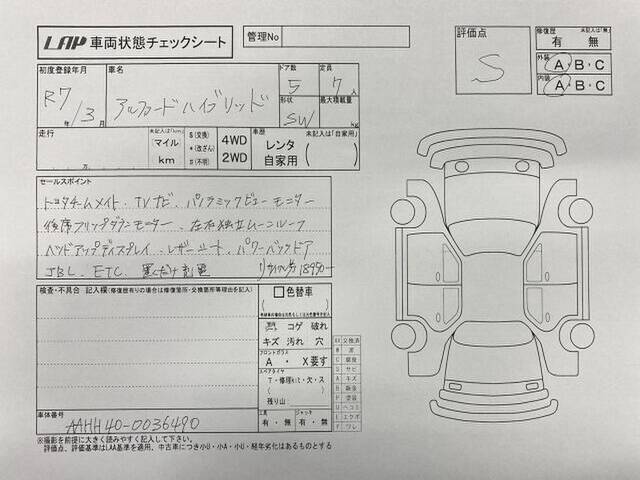 LAP 車両状態チェックシート
管理No
評価点
S
修復歴 未記入は「無」
有 無
外装 A・B・C
内装 A・B・C
初度登録年月 車名 ドア数 定員
R7年/3月 アルファードハイブリッド 5 7人
形状 最大積載量
SW kg
走行 未記入は「km」 車歴 未記入は「自家用」
万 マイル km
$(交換) *(改ざん) #(不明)
4WD 2WD
レンタ 自家用 ( )
セールスポイント
トヨタチームメイト、TVナビ、パノラミックビューモニター
後席フリップダウンモニター、左右独立ムーンルーフ
ヘッドアップディスプレイ、レザーシート、パワーバックドア
JBL、ETC 置くだけ充電 リサイクル券18950-
検査・不具合 記入欄(修復歴有りの場合は修復箇所・交換箇所等理由を記入)
色替車
( )
コゲ 破れ
キズ 汚れ 穴
フロントガラス
A ・ X要す
スペアタイヤ
T・修理kit・欠・ス
( )
残り山:
工具 ジャッキ
有・無 有・無
XX 交換済
W 波
C 腐食
S サビ
A キズ
B 鈑金
P 塗装
U ヘコミ
E エクボ
Y ワレ
車体番号
AAHH40-0036490
※撮影を前提に大きく読みやすく記入して下さい。
評価点、評価基準はLAA基準を適用、中古車につき小U・小A・小U・経年劣化はあるものとする